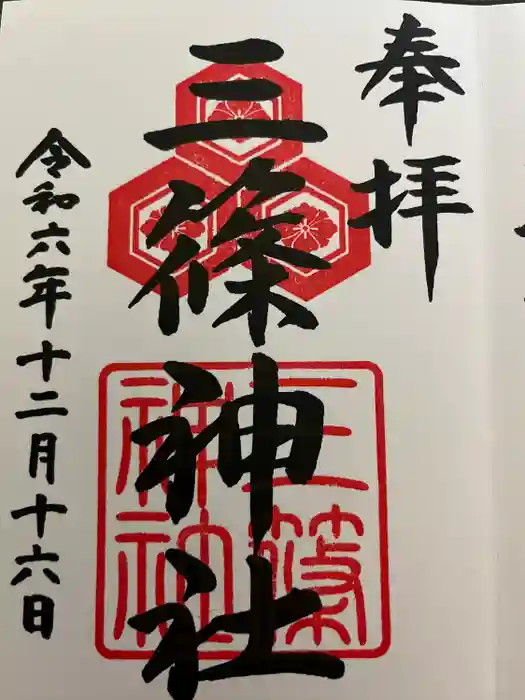 奉拝
三篠神社
令和六年十二月十六日
三篠
神社